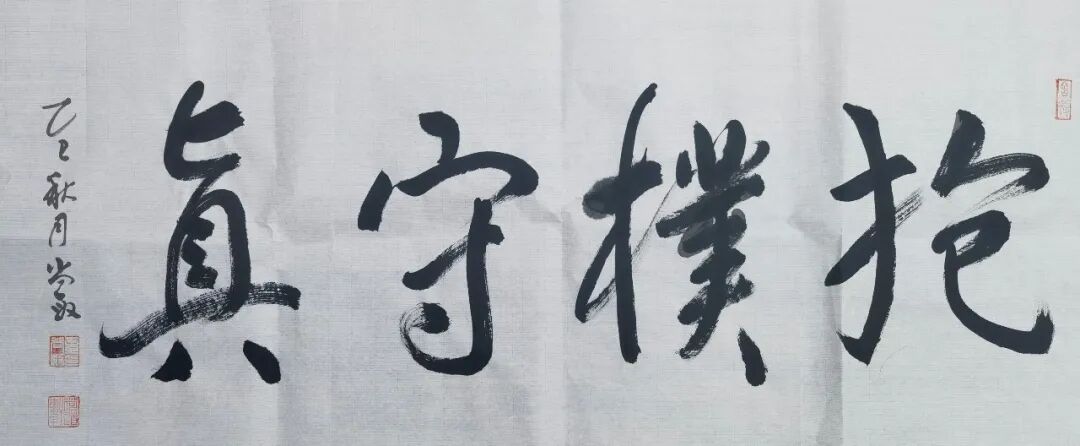 抱樸守真
乙巳秋月